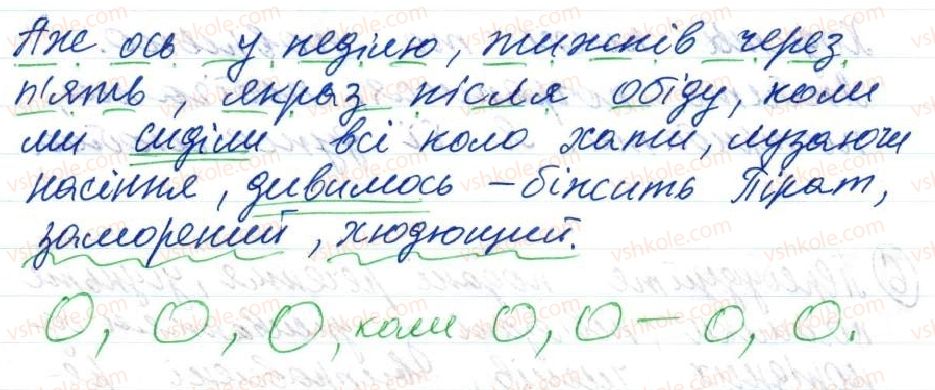 Аж ось у неділю, тижнів через
п'ять, якраз після обіду, коли
ми сиділи всі коло хати, лузаючи
насіння, дивимось – біжить Пірат,
заморений, худющий.
О, О, О, коли О, О – О, О.